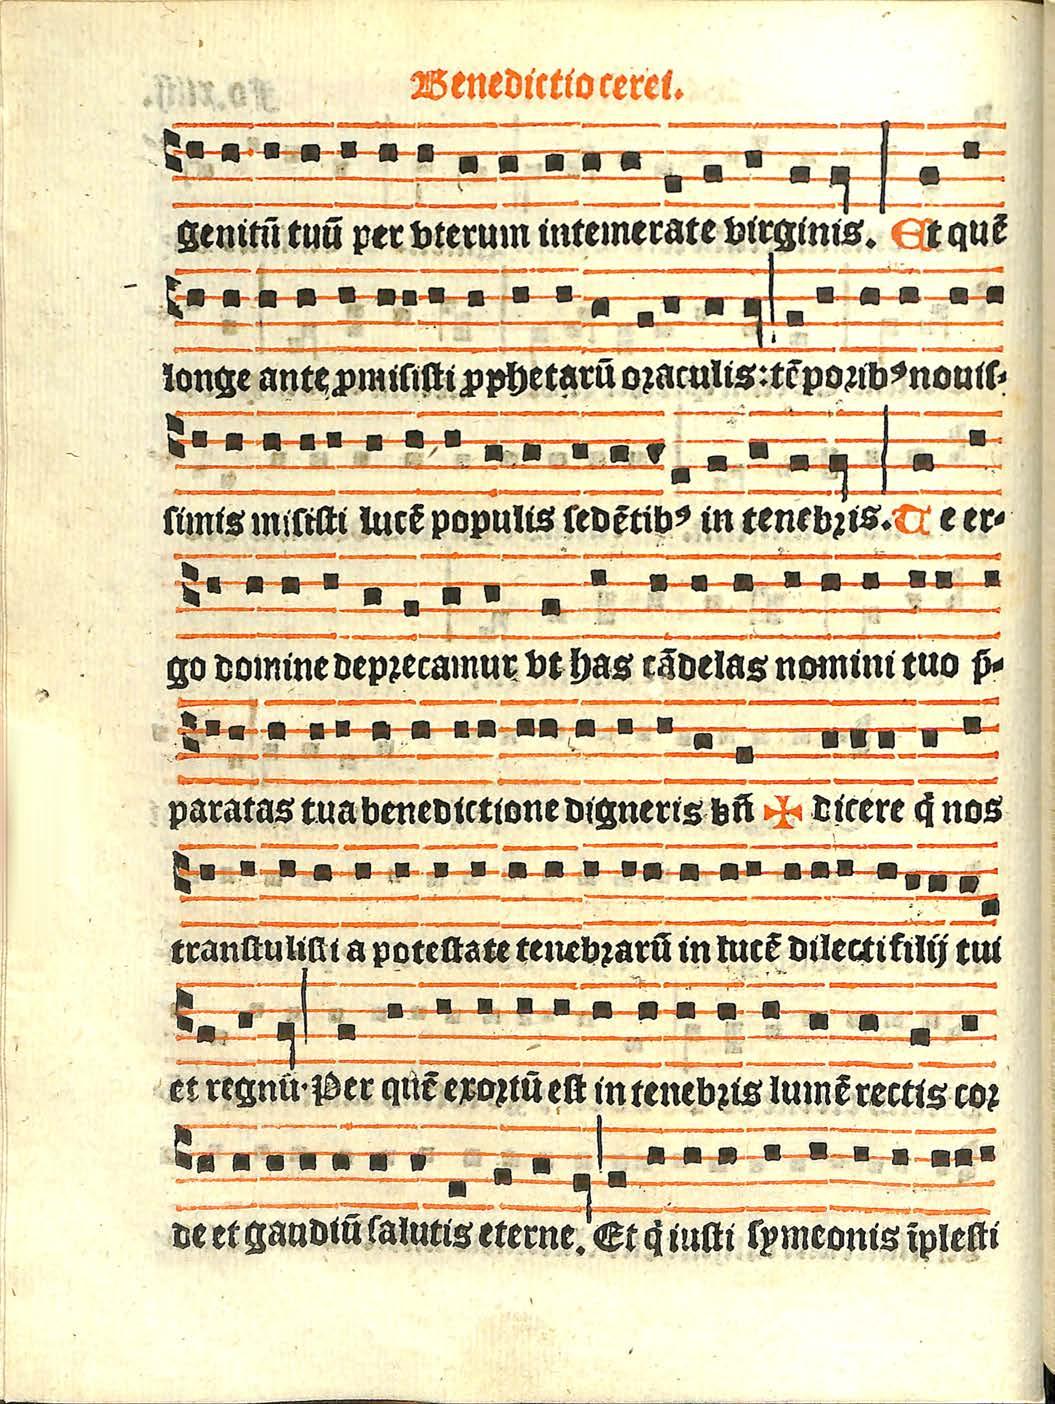 Benedictio cerei.
genitū tuū per vterum intemerate virginis. Et quē
longe ante ꝓmisisti ꝓphetarū oraculis: tēporibꝰ nouis⸗
simis misisti lucē populis sedētibꝰ in tenebris. Te er⸗
go domine deprecamur vt has cādelas nomini tuo p̄⸗
paratas tua benedictione digneris bn̄ ✠ dicere q̇ nos
transtulisti a potestate tenebrarū in lucē dilecti filij tui
et regnū. Per quē exortū est in tenebris lumē rectis cor
de et gaudiū salutis eterne. Et q̇ iusti symeonis īplesti